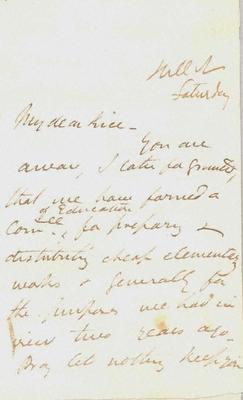 Hill St
Saturday
My dear Rice -
You are
aware, I take for granted,
that we have formed a
Comee of Education, for preparg &
distributg cheap elementary
works & generally for
the purposes we had in
view two years ago.
Pray let nothing keep you